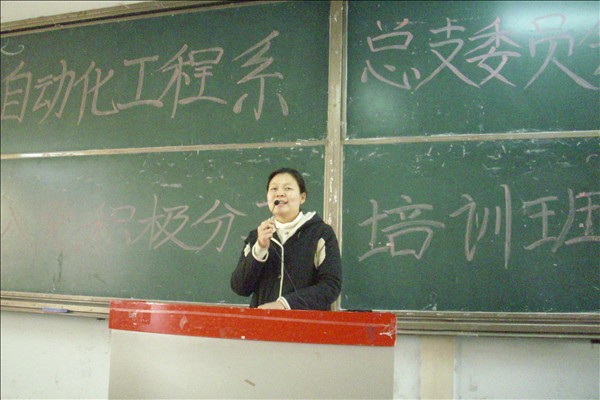 自动化工程系 总支委员会
积极分子 培训班